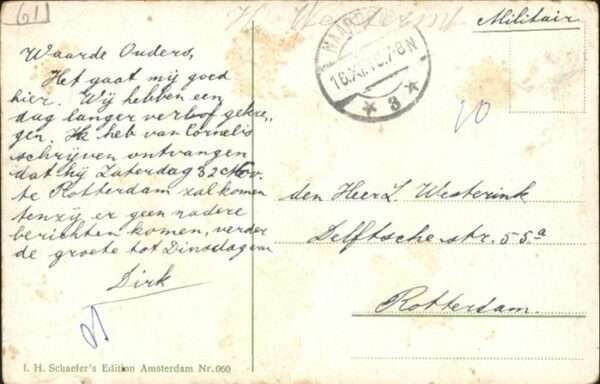 61
Militair
Waarde Ouders,
Het gaat mij goed
hier. Wij hebben een
dag langer verlof gekre„
gen. Ik heb van Cornelis
schrijven ontvangen
dat hij Zaterdag Nov.
te Rotterdam zal komen
tenzij er geen nadere
berichten komen, verder
de groete tot Dinsdagam
Dirk
16.XI. 7-8N
* 3 *
den Heer L. Westerink
Delftsche str. 55a
Rotterdam.
I. H. Schaefer's Edition Amsterdam Nr. 060